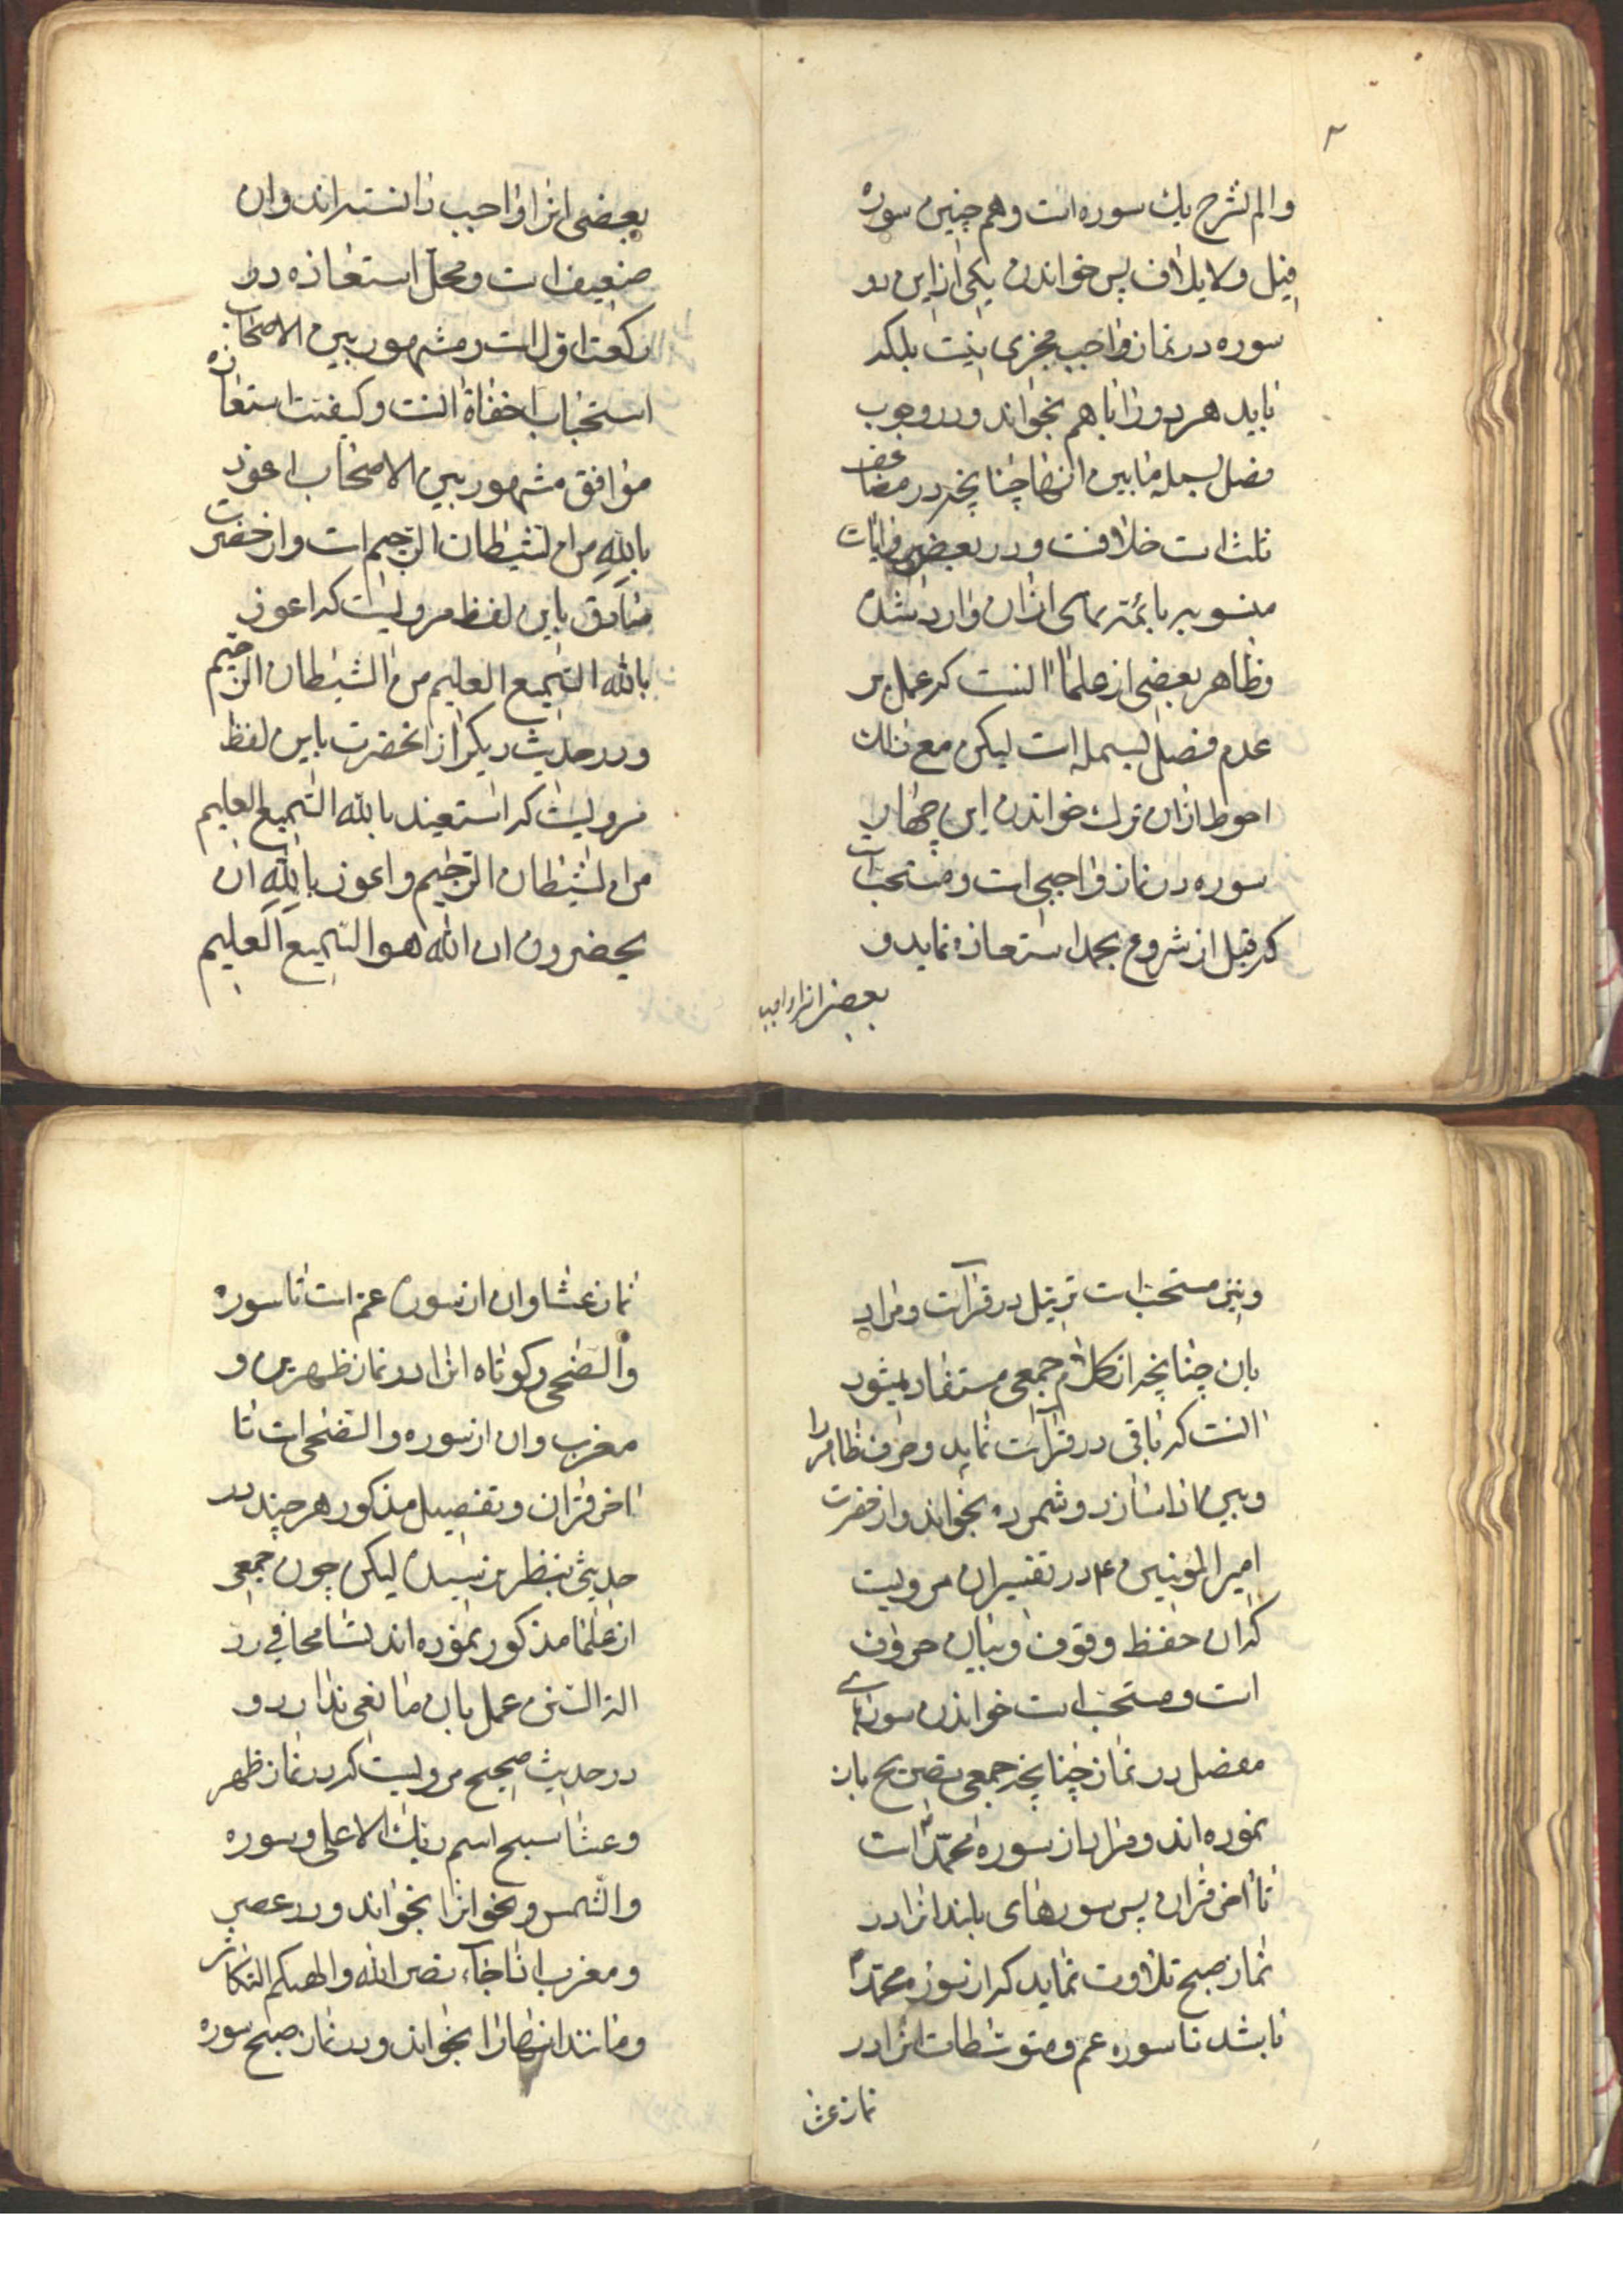 والم نشرح یك سوره است وهم چنین سوره
فیل ولایلاف پس خواندن یکی از این دو
سوره در نماز واجب مجزی نیست بلکه
باید هر دو را با هم بخواند ودر وجوب
فصل بسمله مابین آنها چنانچه در مضاعف
ثلث است خلافست ودر بعضی روایات
منسوبه بائمه سامی اشان وارد شده
وظاهر بعضی از علما انست که عمل بر
عدم فصل بسمله است لیکن مع ذلك
احوط ازان ترك خواندن این چهار
سوره در نماز واجبی است ومستحب است
که قبل از شروع بحمد استعاذه نماید و
بعضی انرا واجب
بعضی انرا واجب دانسته اند وان
ضعیف است ومحل استعاذه در
رکعت اول است ومشهور بین الاصحاب
استحباب اخفاة انست وکیفیت استعاذه
موافق مشهور بین الاصحاب اعوذ
بالله من الشیطان الرجیم است واز حضرت
صادق باین لفظ مرویست که اعوذ
بالله السمیع العلیم من الشیطان الرجیم
ودر حدیث دیکر از انحضرت باین لفظ
مرویست که استعیذ بالله السمیع العلیم
من الشیطان الرجیم واعوذ بالله ان
یحضرون ان الله هو السمیع العلیم
ونیز مستحب است ترتیل در قرآئت ومراد
بان چنانچه از کلام جمعی مستفاد میشود
انست که تاقی در قرآئت نماید وحرف ظاهر را
وبین از اسا زد وشمرده بخواند واز حضرت
امیر المؤمنین ۴ در تفسیر ان مرویست
که ان حفظ وقوف وبیان حروف
است ومستحب است خواندن سورهای
مفصل در نماز چنانچه جمعی تصریح بان
نموده اند ومراد از سوره محمد است
تا اخر قران پس سورهای بلند انرا در
نماز صبح تلاوت نماید که از سوره محمد
باشد تا سوره عم ومتوسطات انرا در
نماز عشا
نماز عشا وان از سوره عم است تا سوره
والضحی وکوتاه انرا در نماز ظهرین و
مغرب وان از سوره والضحی است تا
اخر قران وتفصیل مذکور هر چند در
حدیثی بنظر نرسیده لیکن چون جمعی
از علما مذکور نموده اند تسامحا فی ادلة
السنن عمل بان مانعی ندارد و
در حدیث صحیح مرویست که در نماز ظهر
وعشا سبح اسم ربك الاعلی وسوره
والشمس ونحو انرا بخواند ودر عصر
ومغرب اذا جآء نصر الله والهیکم التکاثر
ومانند انها را بخواند ودر نماز صبح سوره